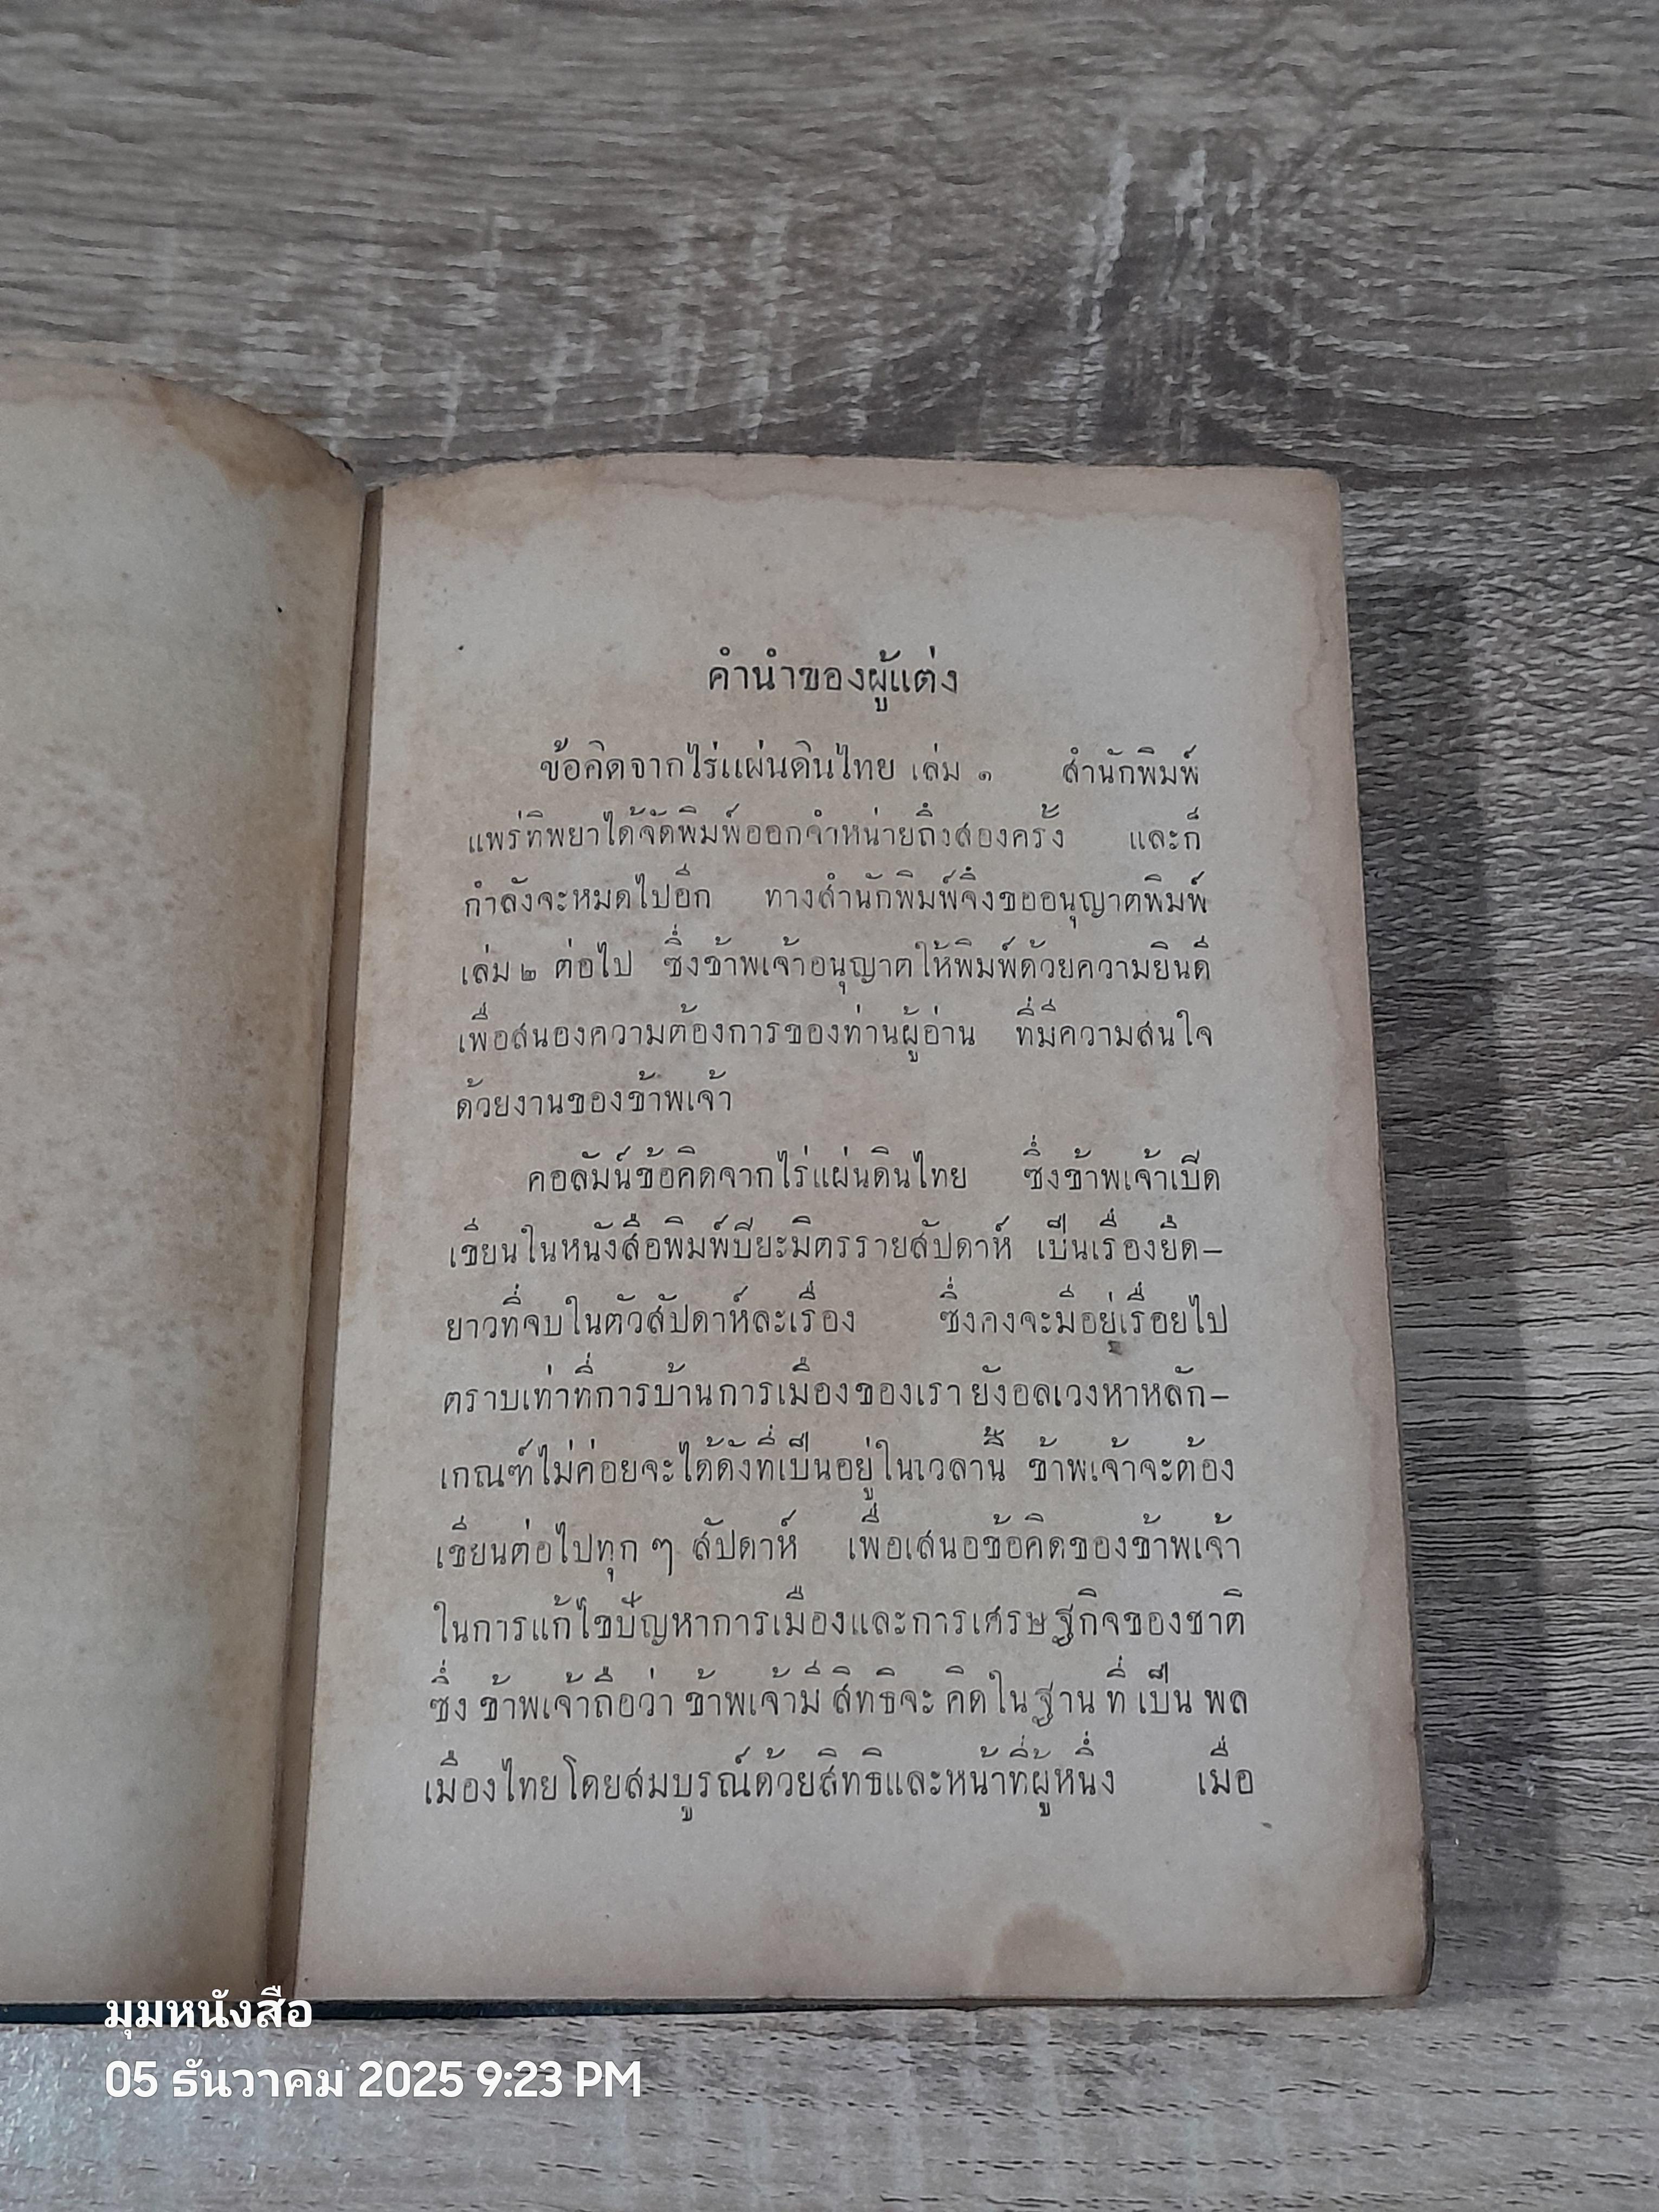 คำนำของผู้แต่ง
ข้อคิดจากไร่แผ่นดินไทย เล่ม ๑ สำนักพิมพ์
แพร่พิทยาได้จัดพิมพ์ออกจำหน่ายถึงสองครั้ง และก็
กำลังจะหมดไปอีก ทางสำนักพิมพ์จึงขออนุญาตพิมพ์
เล่ม ๒ ต่อไป ซึ่งข้าพเจ้าอนุญาตให้พิมพ์ด้วยความยินดี
เพื่อสนองความต้องการของท่านผู้อ่าน ที่มีความสนใจ
ด้วยงานของข้าพเจ้า
คอลัมน์ข้อคิดจากไร่แผ่นดินไทย ซึ่งข้าพเจ้าเปิด
เขียนในหนังสือพิมพ์ปิยะมิตรรายสัปดาห์ เป็นเรื่องยืด-
ยาวที่จบในตัวสัปดาห์ละเรื่อง ซึ่งคงจะมีอยู่เรื่อยไป
ตราบเท่าที่การบ้านการเมืองของเรา ยังอลเวงหาหลัก-
เกณฑ์ไม่ค่อยจะได้ดังที่เป็นอยู่ในเวลานี้ ข้าพเจ้าจะต้อง
เขียนต่อไปทุก ๆ สัปดาห์ เพื่อเสนอข้อคิดของข้าพเจ้า
ในการแก้ไขปัญหาการเมืองและการเศรษฐกิจของชาติ
ซึ่ง ข้าพเจ้าถือว่า ข้าพเจ้ามี สิทธิจะ คิดใน ฐาน ที่ เป็น พล
เมืองไทยโดยสมบูรณ์ด้วยสิทธิและหน้าที่ผู้หนึ่ง เมื่อ
มุมหนังสือ
05 ธันวาคม 2025 9:23 PM